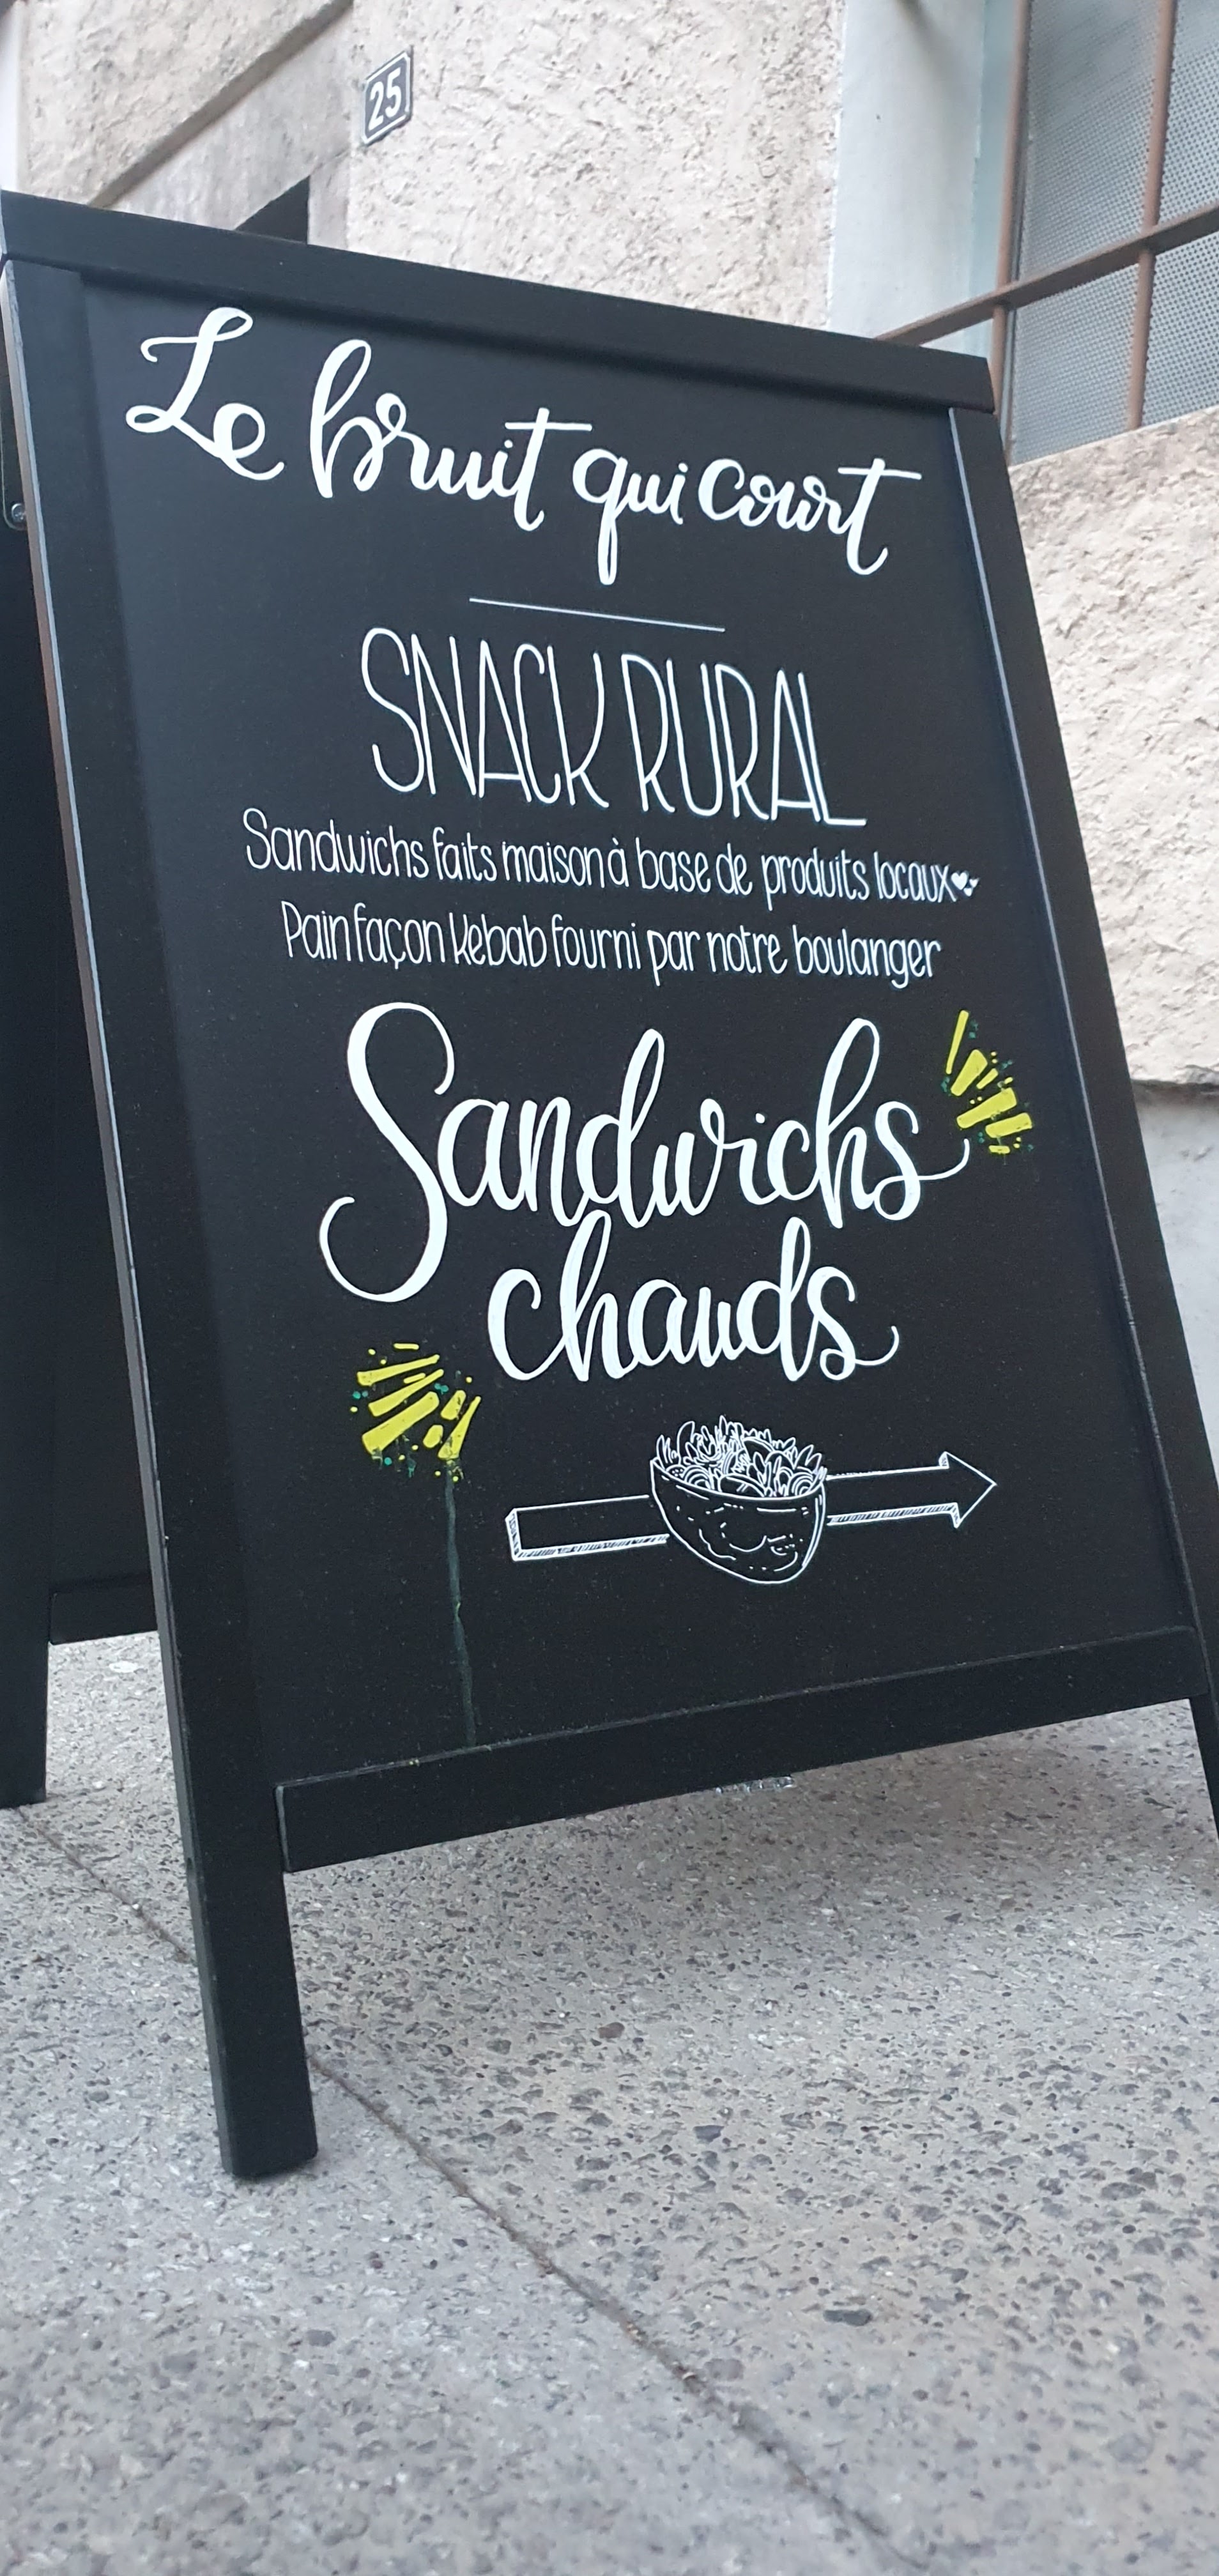 25
Le bruit qui court
SNACK RURAL
Sandwichs faits maison à base de produits locaux
Pain façon kebab fourni par notre boulanger
Sandwichs
chauds